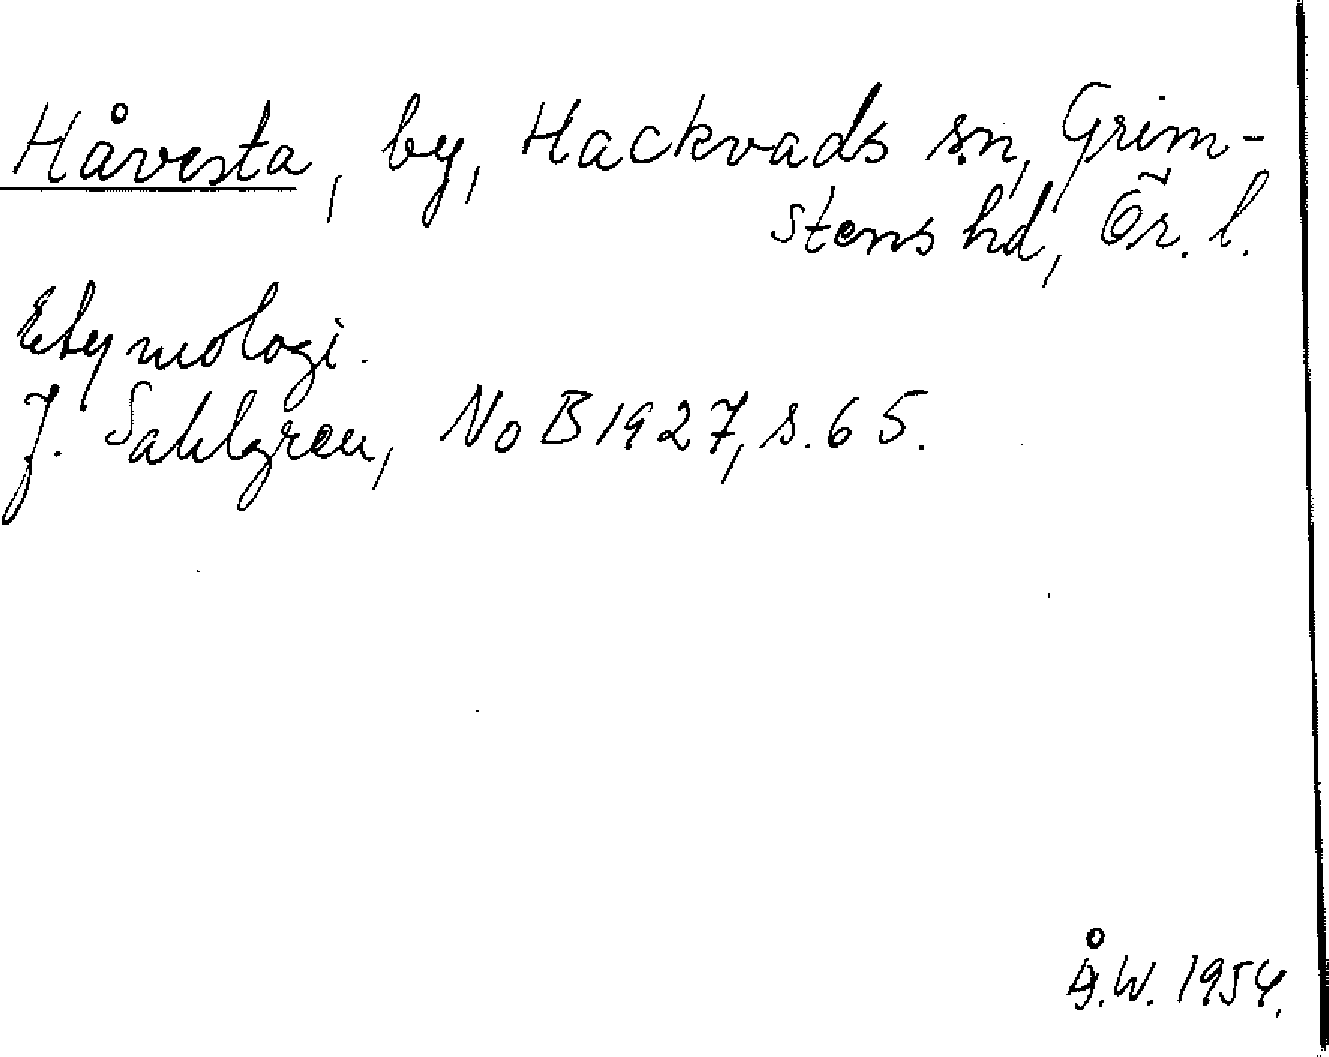 Håvesta, by, Hackvads sn, Grim-
stens hd, Ör. l.
Etymologi.
J. Sahlgren, NoB 1927, s. 65.
Å.W. 1954.